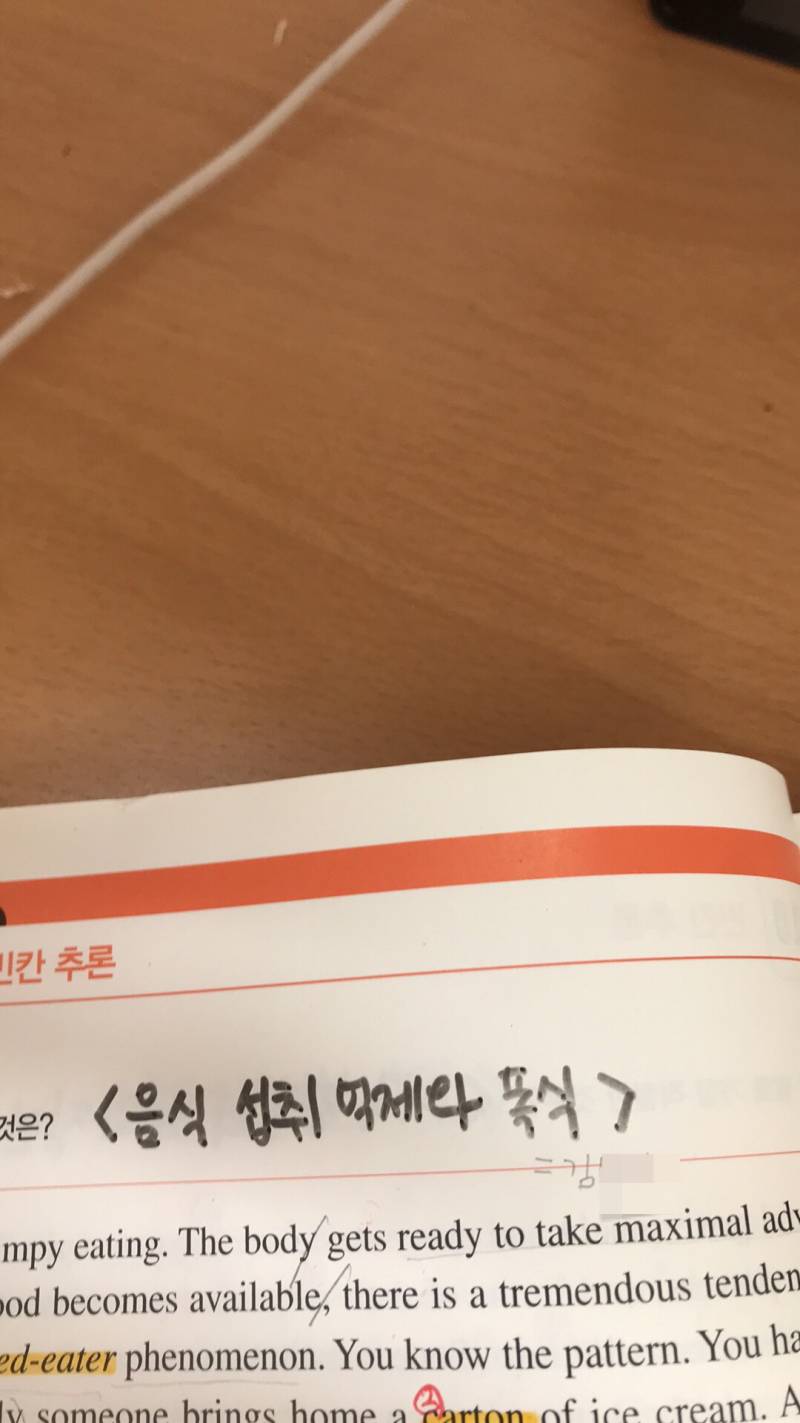 빈칸 추론
것은? <음식 섭취 억제와 폭식>
= 김
mpy eating. The body gets ready to take maximal adv
ood becomes available, there is a tremendous tenden
ed-eater phenomenon. You know the pattern. You ha
ly someone brings home a carton of ice cream. A